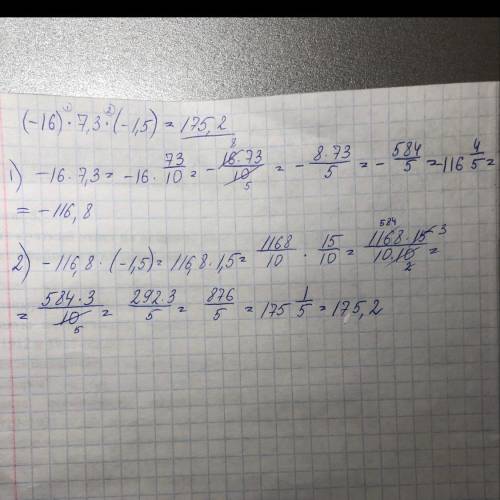 (-16) ·① 7,3 ·② (-1,5) = 175,2
1) -16 · 7,3 = -16 · 73/10 = - 16·73/10 8 5 = - 8·73/5 = - 584/5 = -116 4/5 =
= -116,8
2) -116,8 · (-1,5) = 116,8 · 1,5 = 1168/10 · 15/10 = 1168·15/10·10 584 3 2 =
= 584·3/10 5 = 292·3/5 = 876/5 = 175 1/5 = 175,2